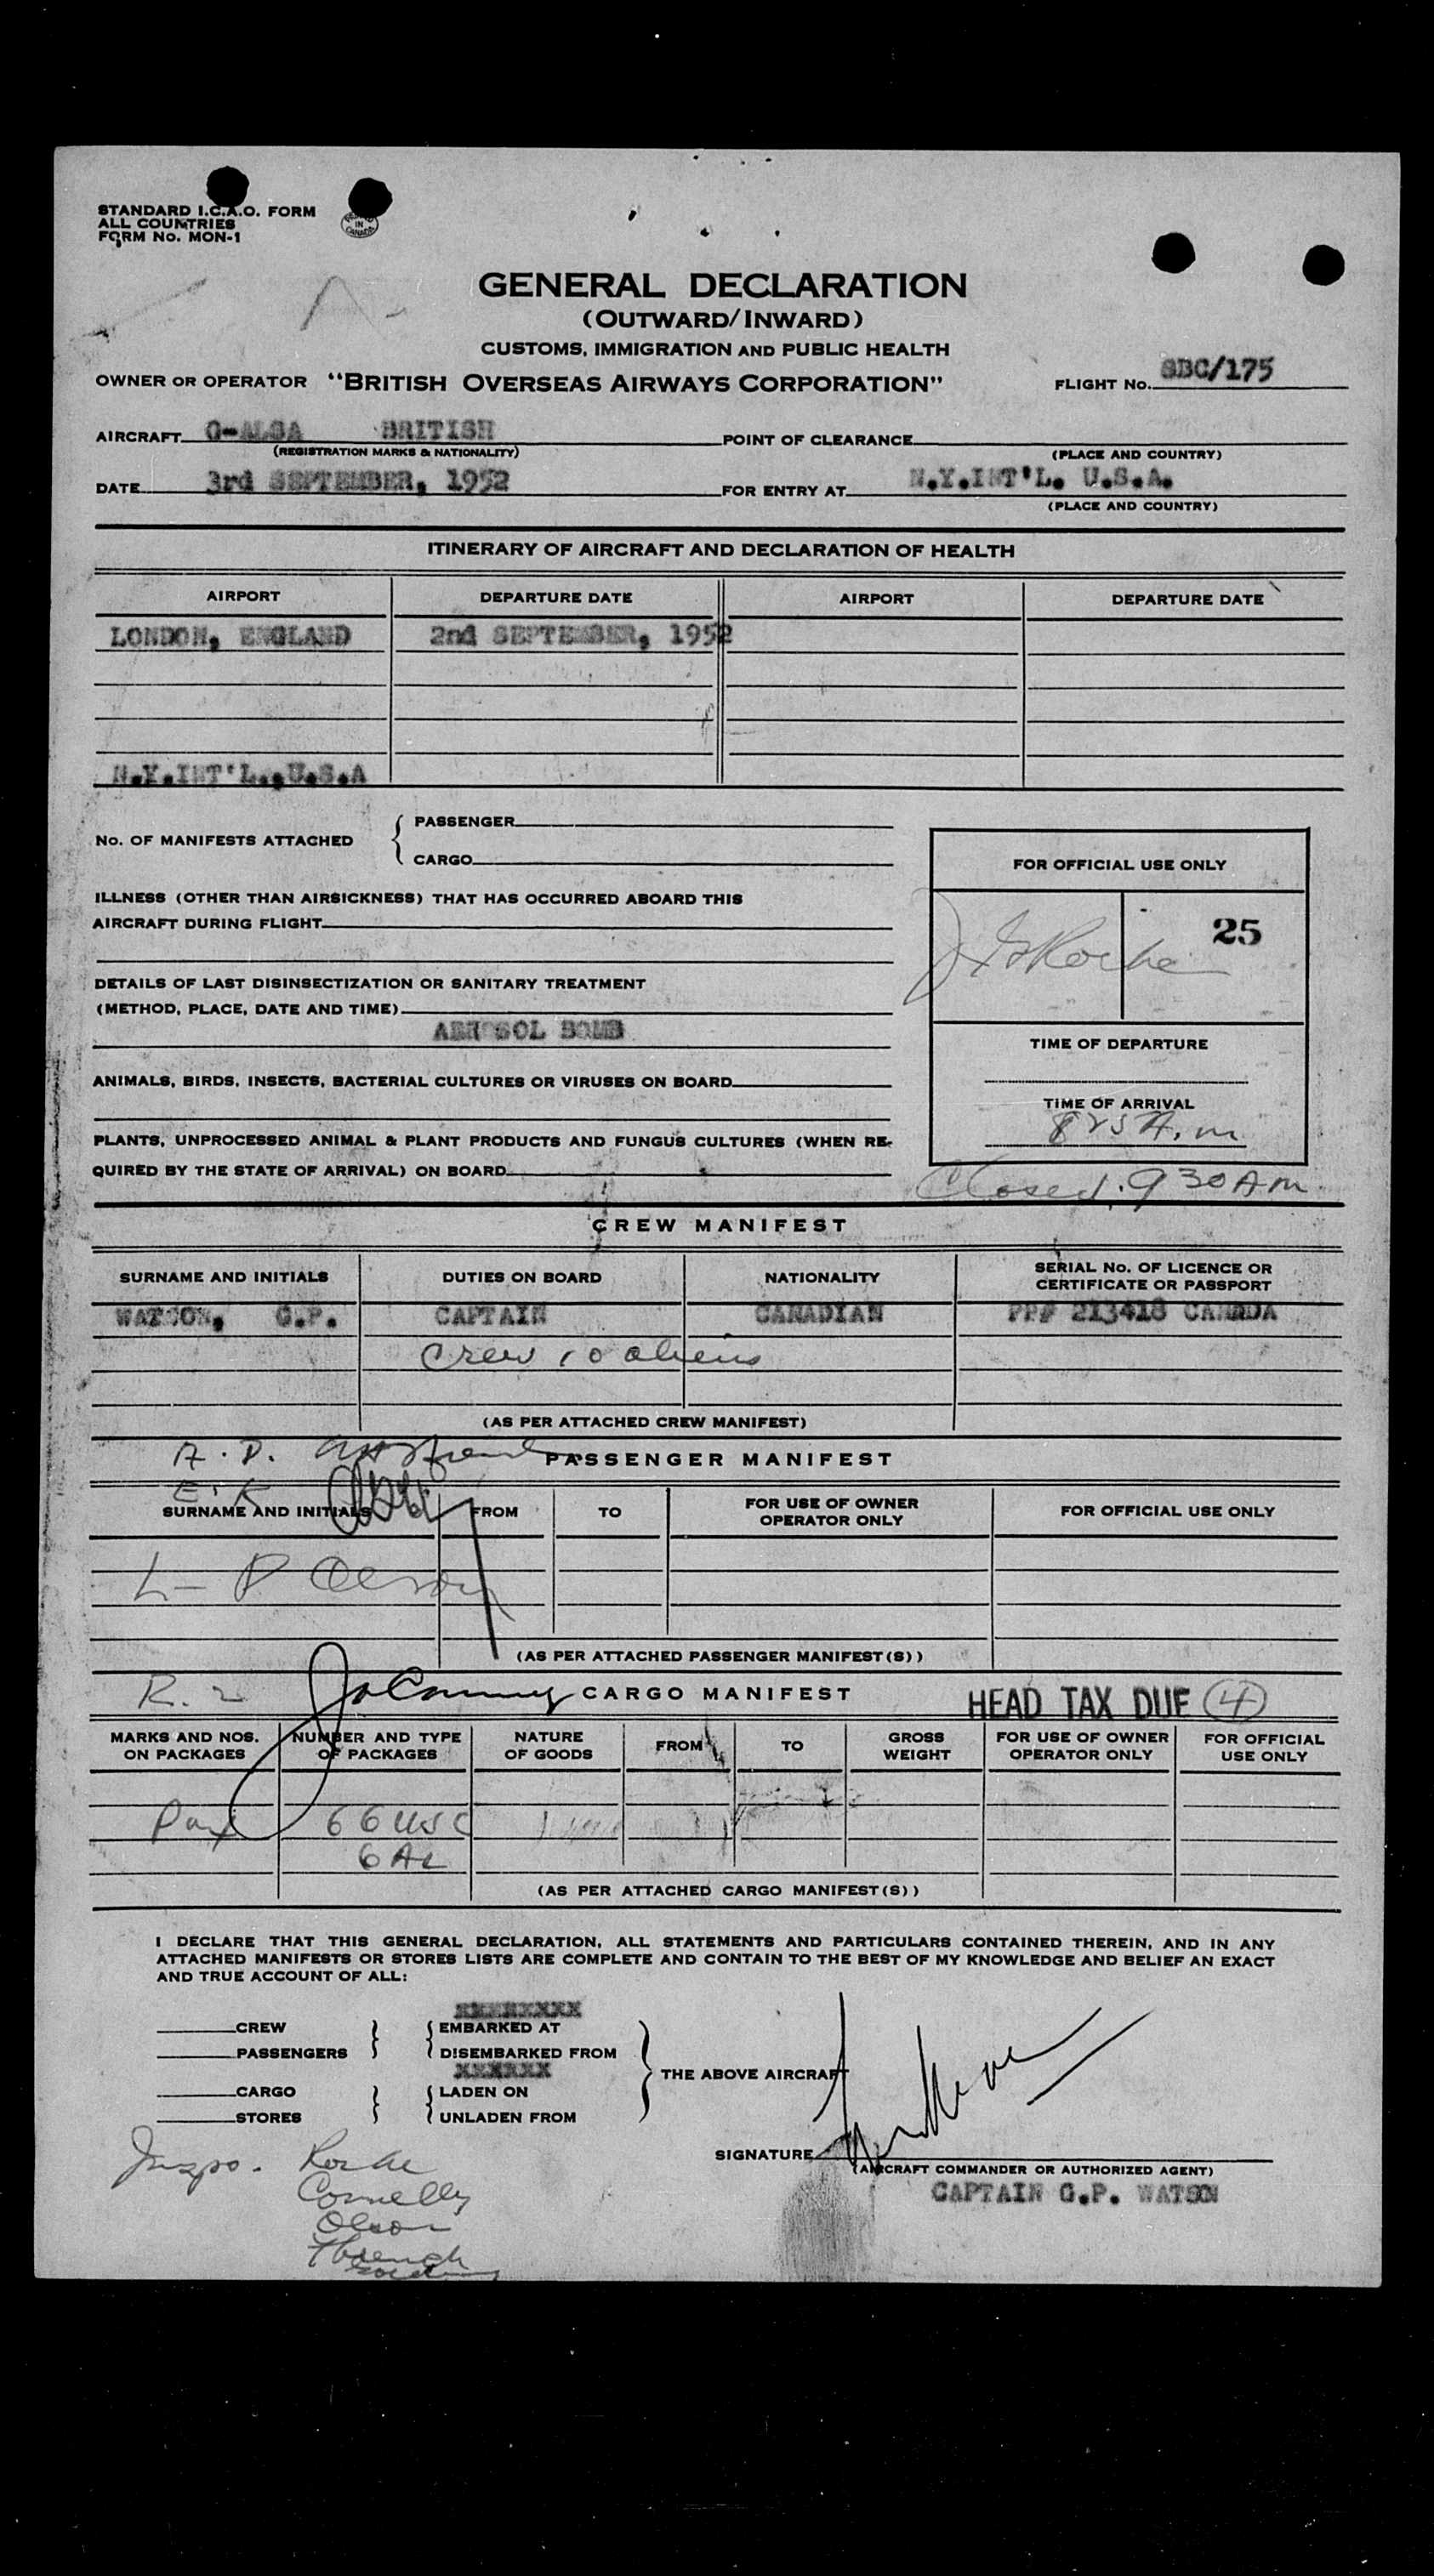 STANDARD I.C.A.O. FORM
ALL COUNTRIES
FORM No. MON-1
IN CANADA
GENERAL DECLARATION
(OUTWARD/INWARD)
CUSTOMS, IMMIGRATION AND PUBLIC HEALTH
OWNER OR OPERATOR "BRITISH OVERSEAS AIRWAYS CORPORATION" FLIGHT No. SBC/175
AIRCRAFT G-ALSA BRITISH POINT OF CLEARANCE
(REGISTRATION MARKS & NATIONALITY) (PLACE AND COUNTRY)
DATE 3rd SEPTEMBER, 1952 FOR ENTRY AT N.Y.INT'L. U.S.A.
(PLACE AND COUNTRY)
ITINERARY OF AIRCRAFT AND DECLARATION OF HEALTH
AIRPORT DEPARTURE DATE AIRPORT DEPARTURE DATE
LONDON, ENGLAND 2nd SEPTEMBER, 1952
N.Y.INT'L.,U.S.A
No. OF MANIFESTS ATTACHED { PASSENGER
CARGO
FOR OFFICIAL USE ONLY
ILLNESS (OTHER THAN AIRSICKNESS) THAT HAS OCCURRED ABOARD THIS
AIRCRAFT DURING FLIGHT
Roche 25
DETAILS OF LAST DISINSECTIZATION OR SANITARY TREATMENT
(METHOD, PLACE, DATE AND TIME)
AEROSOL BOMB
TIME OF DEPARTURE
ANIMALS, BIRDS, INSECTS, BACTERIAL CULTURES OR VIRUSES ON BOARD
TIME OF ARRIVAL
825 A.m
PLANTS, UNPROCESSED ANIMAL & PLANT PRODUCTS AND FUNGUS CULTURES (WHEN RE-
QUIRED BY THE STATE OF ARRIVAL) ON BOARD
Closed. 930 Am
CREW MANIFEST
SURNAME AND INITIALS DUTIES ON BOARD NATIONALITY SERIAL No. OF LICENCE OR
CERTIFICATE OR PASSPORT
WATSON, G.P. CAPTAIN CANADIAN PP# 213418 CANADA
Crew 10 aliens
(AS PER ATTACHED CREW MANIFEST)
A. D.
PASSENGER MANIFEST
E. K
SURNAME AND INITIALS FROM TO FOR USE OF OWNER
OPERATOR ONLY FOR OFFICIAL USE ONLY
L- P Olson
(AS PER ATTACHED PASSENGER MANIFEST(S))
R. 2 CARGO MANIFEST HEAD TAX DUE 4
MARKS AND NOS.
ON PACKAGES NUMBER AND TYPE
OF PACKAGES NATURE
OF GOODS FROM TO GROSS
WEIGHT FOR USE OF OWNER
OPERATOR ONLY FOR OFFICIAL
USE ONLY
Pax 66 USC
6 AL
(AS PER ATTACHED CARGO MANIFEST(S))
I DECLARE THAT THIS GENERAL DECLARATION, ALL STATEMENTS AND PARTICULARS CONTAINED THEREIN, AND IN ANY
ATTACHED MANIFESTS OR STORES LISTS ARE COMPLETE AND CONTAIN TO THE BEST OF MY KNOWLEDGE AND BELIEF AN EXACT
AND TRUE ACCOUNT OF ALL:
XXXXXXXX
CREW EMBARKED AT
PASSENGERS DISEMBARKED FROM
XXXXXX
THE ABOVE AIRCRAFT
CARGO LADEN ON
STORES UNLADEN FROM
SIGNATURE
(AIRCRAFT COMMANDER OR AUTHORIZED AGENT)
CAPTAIN G.P. WATSON
Inspo. Roche
Connelly
Olson